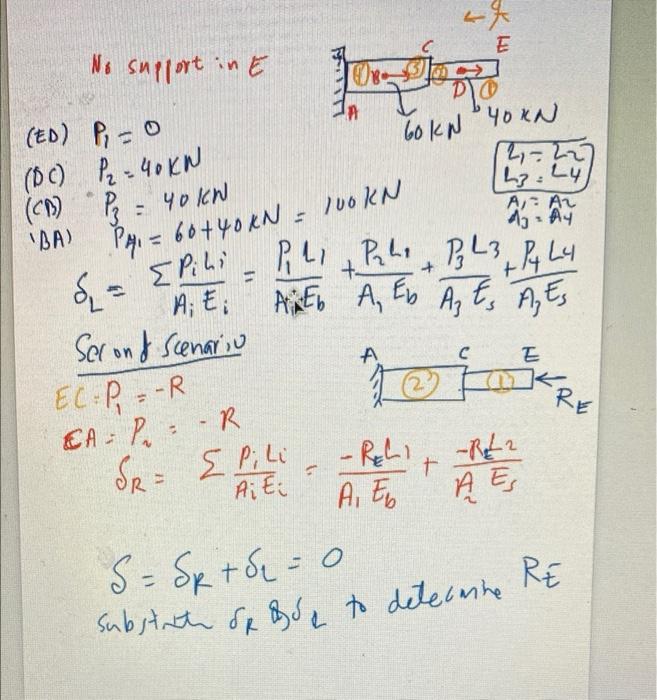 No support in E
C E
① B ③ ② D ①
A
60 KN 40 KN
(ED) P₁ = 0
(DC) P₂ = 40 KN
(CB) P₃ = 40 KN
(BA) P₄ = 60+40 KN = 100 KN
L₁ = L₂
L₃ = L₄
A₁ = A₂
A₃ = A₄
δ_L = Σ PiLi / AiEi = P₁L₁ / A₁E_b + P₂L₁ / A₁E_b + P₃L₃ / A₃E_s + P₄L₄ / A₃E_s
Second Scenario
A C E
② ① R_E
EC = P₁ = -R
CA = P₂ = -R
δ_R = Σ PiLi / AiEi = -R_E L₁ / A₁E_b + -R_E L₂ / A₂ E_s
δ = δ_R + δ_L = 0
δ_R δ_L to determine R_E